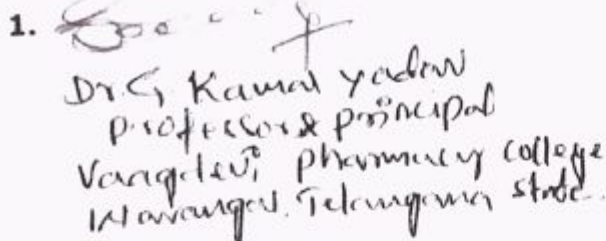 1.
Dr. G Kamal Yadav
Professor & Principal
Vaagdevi Pharmacy College
Warangal. Telangana State.